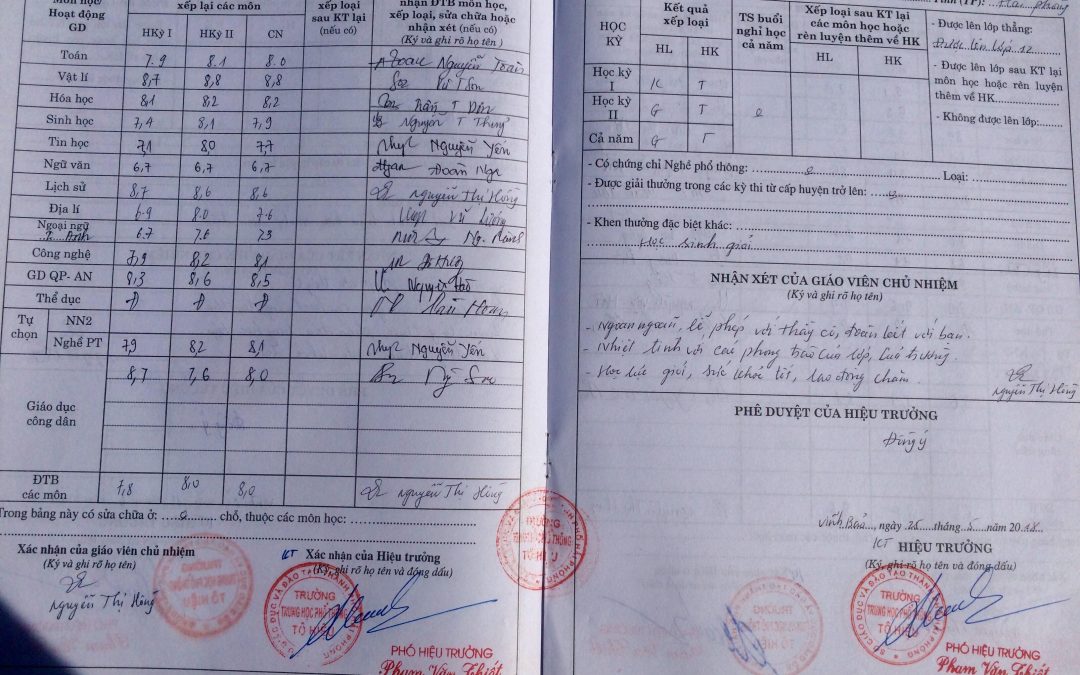 Môn học/
Hoạt động
GD
xếp loại các môn
HKỳ I HKỳ II CN
xếp loại
sau KT lại
(nếu có)
nhận ĐTB môn học,
xếp loại, sửa chữa hoặc
nhận xét (nếu có)
(Ký và ghi rõ họ tên)
Toán 7.9 8.1 8.0 Nguyễn Toàn
Vật lí 8,7 8,8 8,8
Hóa học 8,1 8,2 8,2 Trần T
Sinh học 7,4 8,1 7,9 Nguyễn T
Tin học 7,1 8,0 7,7 Nguyễn Yến
Ngữ văn 6,7 6,7 6,7 Đoàn Nga
Lịch sử 8,7 8,6 8,6 Nguyễn Thị Hồng
Địa lí 6.9 8.0 7.6 Vũ
Ngoại ngữ
T. Anh 6.7 7.6 7.3 Ng.
Công nghệ 7,9 8,2 8,1
GD QP- AN 8,3 8,6 8,5 Nguyễn
Thể dục Đ Đ Đ
Tự
chọn
NN2
Nghề PT 7,9 8,2 8,1 Nguyễn Yến
8,7 7,6 8,0
Giáo dục
công dân
ĐTB
các môn 7,8 8,0 8,0 Nguyễn Thị Hồng
Trong bảng này có sửa chữa ở: ....0.... chỗ, thuộc các môn học: ....................
Xác nhận của giáo viên chủ nhiệm
(Ký và ghi rõ họ tên)
Nguyễn Thị Hồng
KT Xác nhận của Hiệu trưởng
(Ký, ghi rõ họ tên và đóng dấu)
SỞ GIÁO DỤC VÀ ĐÀO TẠO THÀNH PHỐ HẢI PHÒNG
TRƯỜNG
TRUNG HỌC PHỔ THÔNG
TÔ HIỆU
PHÓ HIỆU TRƯỞNG
Phạm Văn Thiết
Tỉnh (TP): Hải Phòng
HỌC
KỲ
Kết quả
xếp loại
HL HK
TS buổi
nghỉ học
cả năm
Xếp loại sau KT lại
các môn học hoặc
rèn luyện thêm về HK
HL HK
- Được lên lớp thẳng:
Được lên lớp 12
- Được lên lớp sau KT lại
môn học hoặc rèn luyện
thêm về HK....................
- Không được lên lớp:........
Học kỳ
I K T
Học kỳ
II G T 0
Cả năm G T
- Có chứng chỉ Nghề phổ thông: ........0........ Loại: ....................
- Được giải thưởng trong các kỳ thi từ cấp huyện trở lên: ....0....
- Khen thưởng đặc biệt khác: ....................
Học sinh giỏi
NHẬN XÉT CỦA GIÁO VIÊN CHỦ NHIỆM
(Ký và ghi rõ họ tên)
- Ngoan ngoãn, lễ phép với thầy cô, đoàn kết với bạn.
- Nhiệt tình với các phong trào của lớp, của trường.
- Học lực giỏi, sức khỏe tốt, lao động chăm.
Nguyễn Thị Hồng
PHÊ DUYỆT CỦA HIỆU TRƯỞNG
Đồng ý
Vĩnh Bảo, ngày 25 tháng 5 năm 2018
KT HIỆU TRƯỞNG
(Ký, ghi rõ họ tên và đóng dấu)
TRƯỜNG
TRUNG HỌC PHỔ THÔNG
TÔ HIỆU
PHÓ HIỆU TRƯỞNG
Phạm Văn Thiết